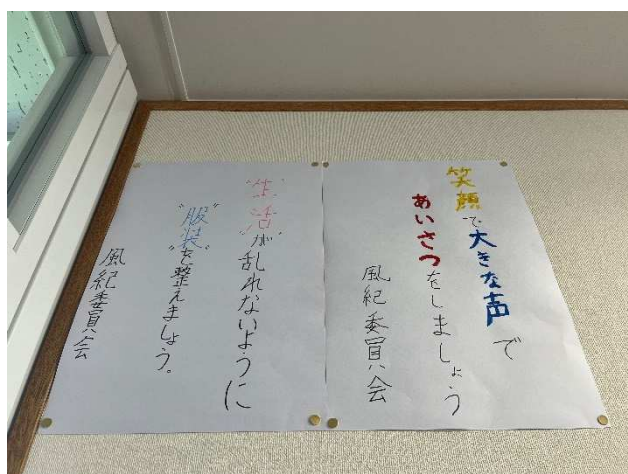 笑顔で大きな声で
あいさつをしましょう
風紀委員会
"生活"が乱れないように
"服装"を整えましょう。
風紀委員会